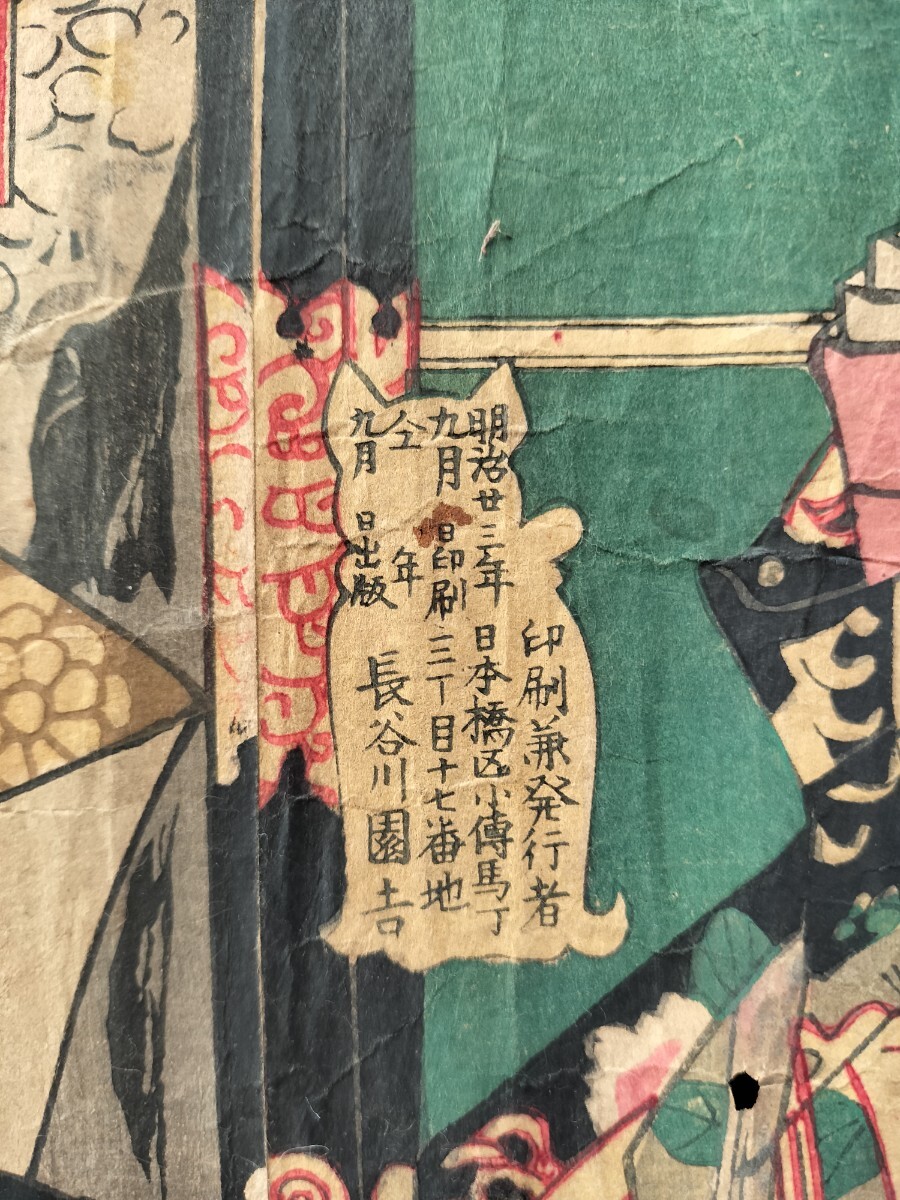 明治廿三年
九月 日印刷
仝 年
九月 日出版
印刷兼発行者
日本橋区小傳馬丁
三丁目十七番地
長谷川園吉